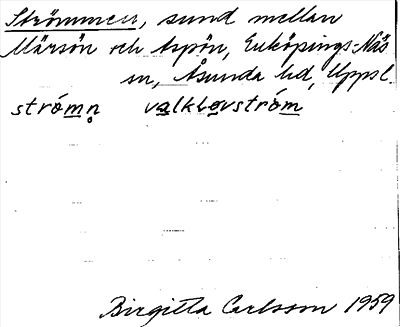 Strömmen, sund mellan
Märsön och Arpön, Enköpings-Näs
sn, Åsunda hd, Uppsl.
strómn̥ valkbovstróm
Birgitta Carlsson 1959